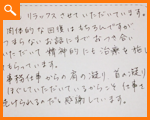 リラックスさせていただいています。
肉体的な回復はもちろんですが
つまらないお話にまでおつき合い
いただいて精神的にも治療を施し
てもらっています。
事務仕事からの肩の凝り 首の凝り
ほぐしていただいているからこそ仕事も
続けられるのだと感謝しています。